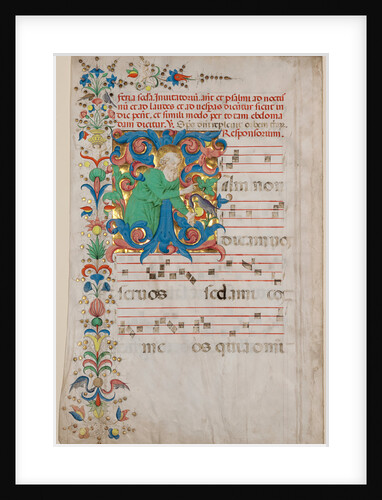 feria sexta. Invitatoriũ. añt et psalmi ad noctur
nũ et ad laudes et ad vesperas dicũtur sicut in
die pent. et simili modo per totam ebdoma
dam dicitur. V.
Responsorium.
am non
dicam vos
servos sed amicos
meos quia omni